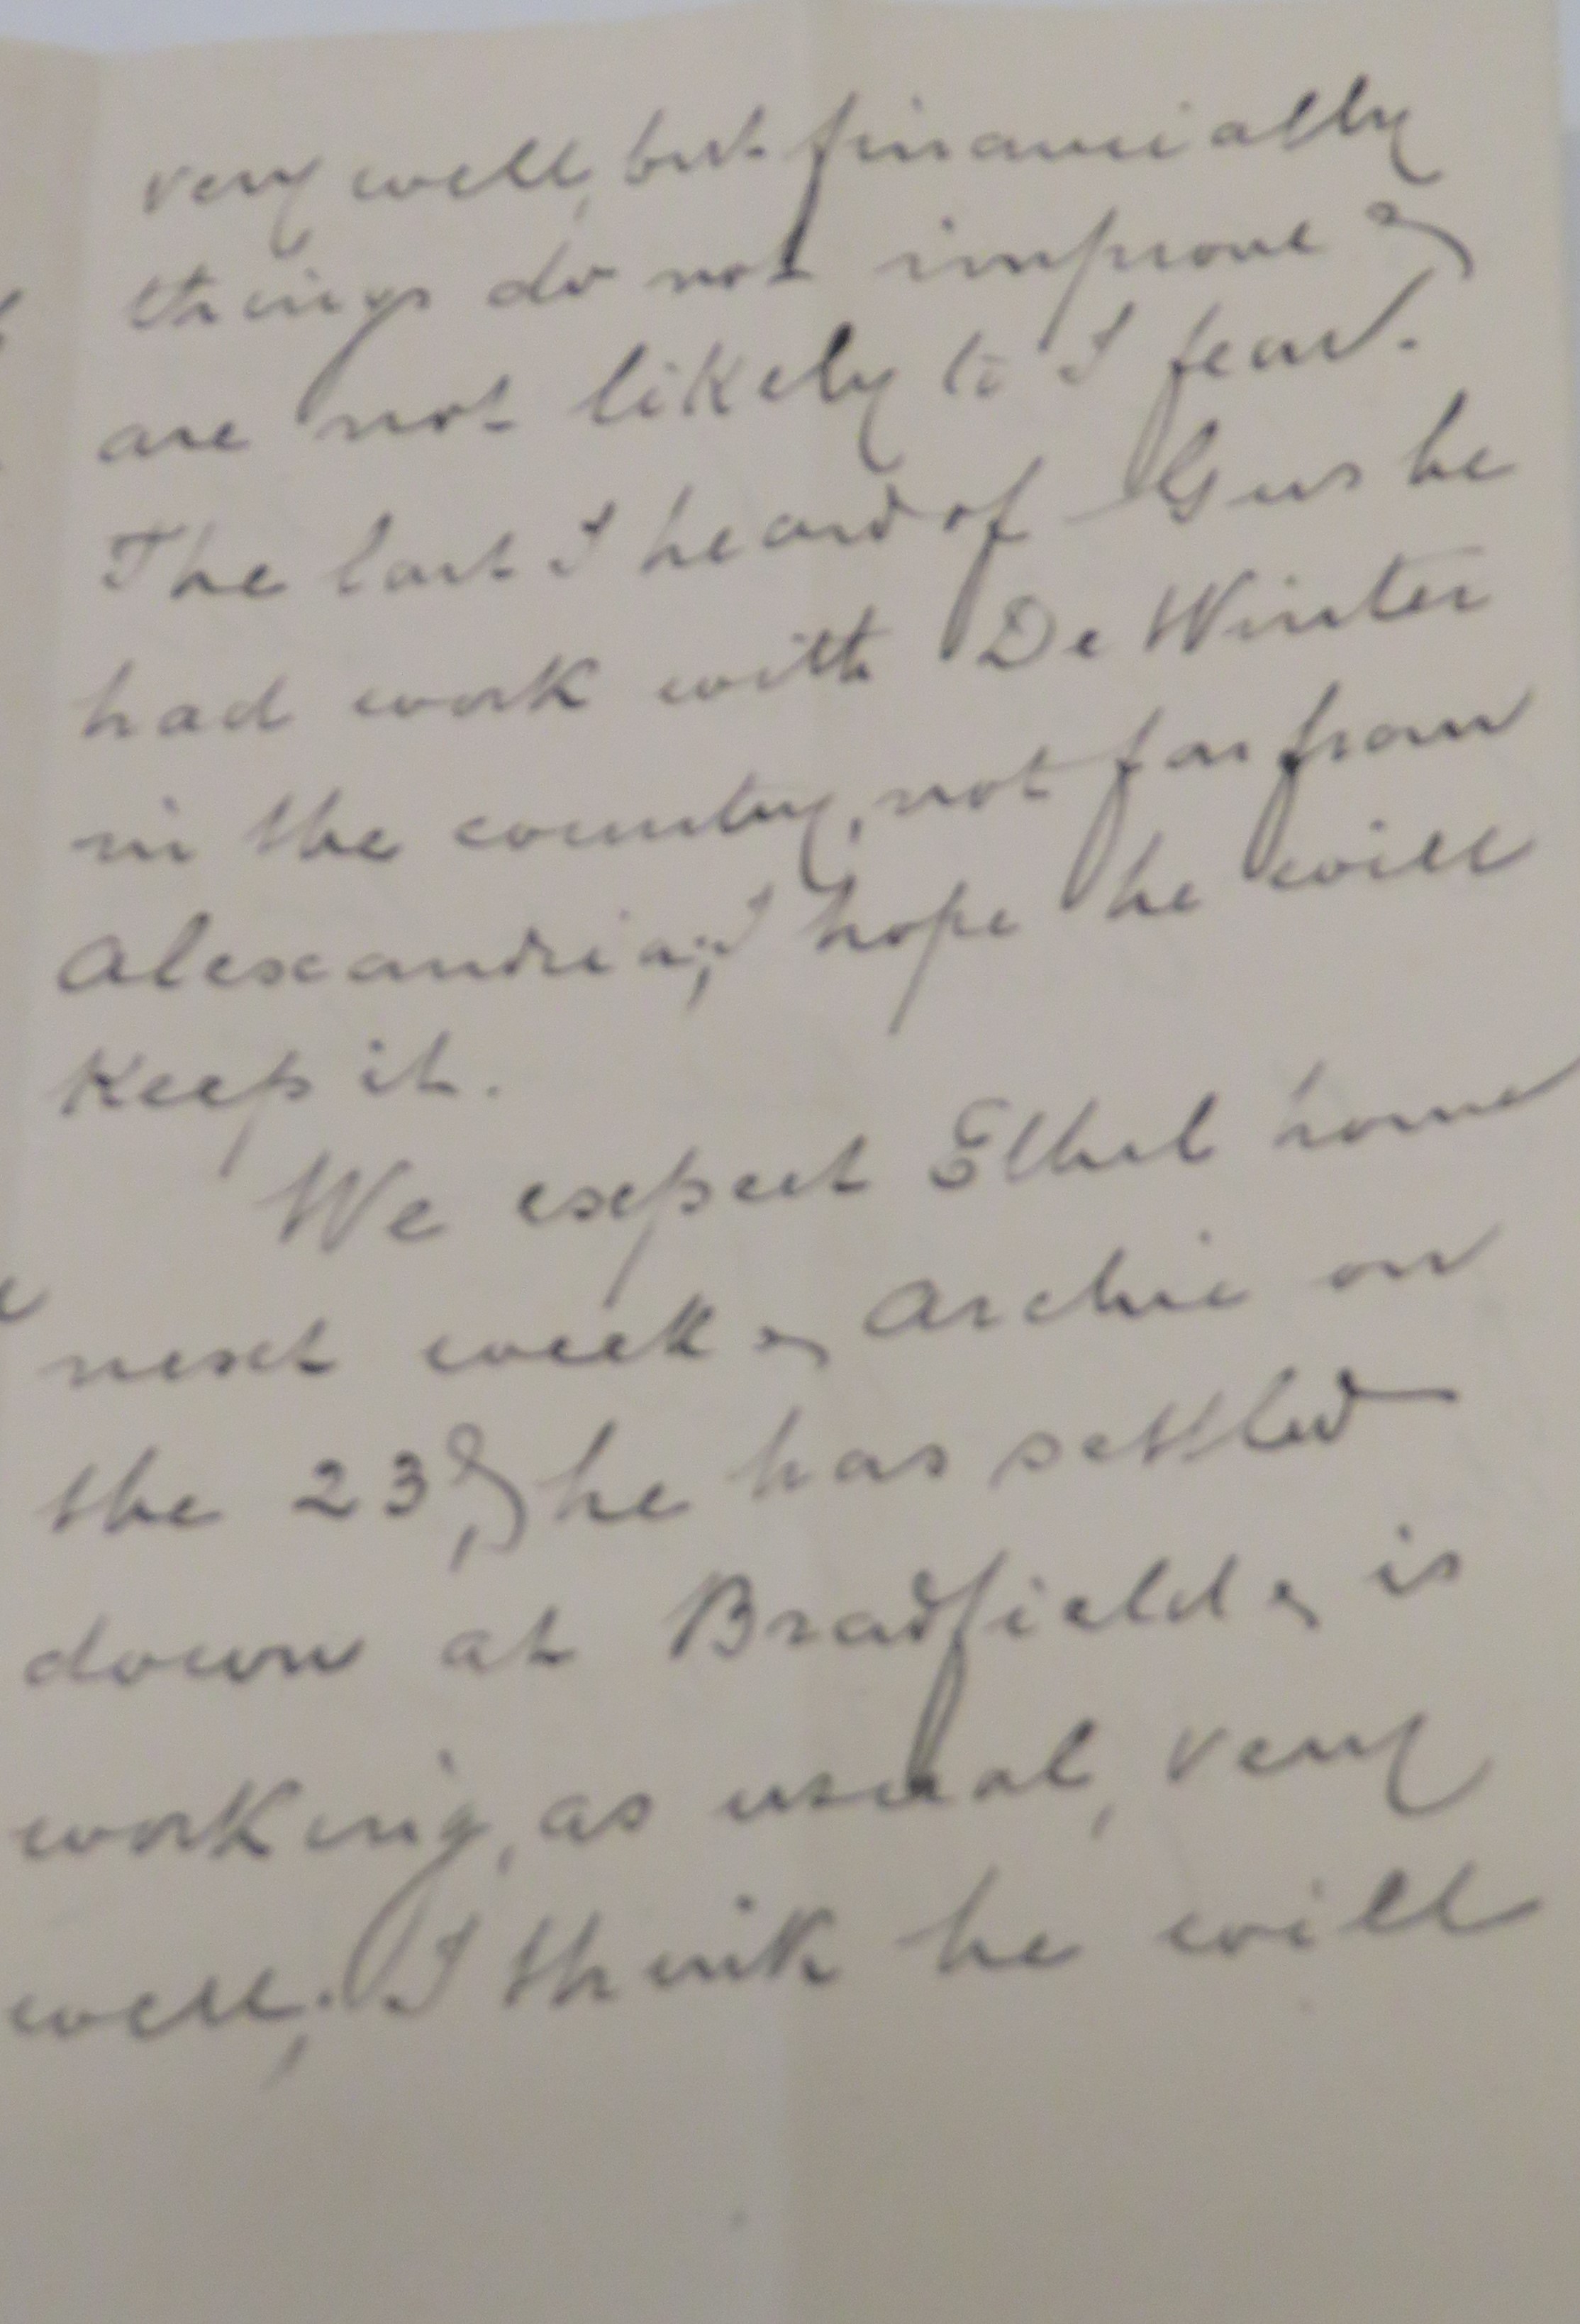 very well, but financially
things do not improve &
are not likely to I fear.
The last I heard of Gus he
had work with De Winter
in the country, not far from
Alexandria; I hope he will
Keep it.
We expect Ethel home
next week & Archie on
the 23rd; he has settled
down at Bradfield & is
working, as usual, very
well; I think he will